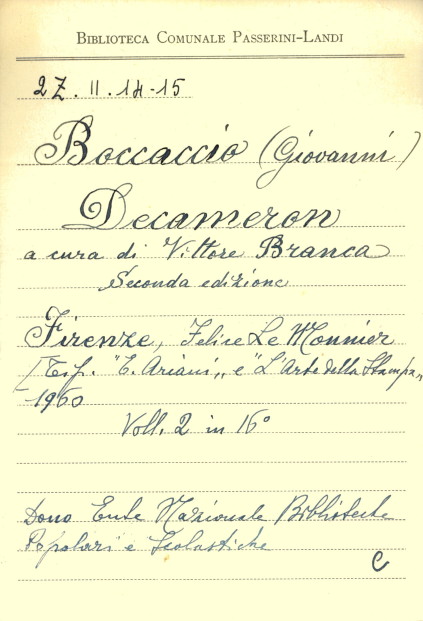 BIBLIOTECA COMUNALE PASSERINI-LANDI
2Z. II. 14-15
Boccaccio (Giovanni)
Decameron
a cura di Vittore Branca
Seconda edizione
Firenze, Felice Le Monnier
[Tip. "E. Ariani„ e "L'Arte della Stampa„
1960
Voll. 2 in 16°
Dono Ente Nazionale Biblioteche
Popolari e Scolastiche
C